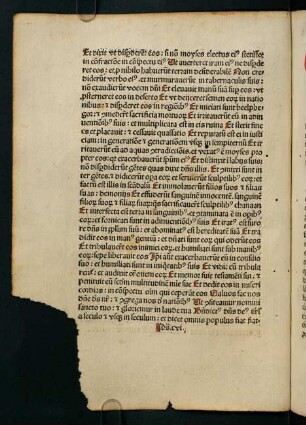 Et dixit vt disp̄deret eos: si nō moyses electus ei⁹ stetisset
in cōfractiōe in cōspectu ei⁹ Ut auerteret iram ei⁹ ne disp̄deret
eos: et ,p nihilo habuerūt terram desiderabilē Non cre
diderūt verbo ei⁹: et murmurauerūt in tabernaculis suis:
nō exaudierūt vocem dn̄i Et eleuauit manū suā sup eos: vt
,psterneret eos in deserto Et vt deiiceret semē eoꝝ in natio
nibus: ⁊ disp̄deret eos in regiōib⁹ Et iniciati sunt beelphe
gor: ⁊ comederūt sacrificia mortuoꝝ Et irritauerūt eū in adin
uentiōib⁹ suis: et multiplicata est in eis ruina Et stetit fine
es et placauit: ⁊ cessauit quassatio Et reputatū est ei in iusti
ciam: in generatiōe ⁊ generationem vsqꝫ in sempiternū Et ir
ritauerūt eū ad aquas ꝯtradictiōis: et vexat⁹ ē moyses pro
pter eos: qꝛ exacerbauerūt spūm ei⁹ Et distinxit ī labiis suis:
nō disp̄diderūt gētes quas dixit dn̄s illis Et ꝯmixti sunt in ter
gētes: ⁊ didicerūt opa eoꝝ: et seruierūt sculptilib⁹ eoꝝ: et
factū est illis in scādalū Et immolauerūt filios suos: ⁊ filias
suas: demoniis Et effuderūt sanguinē innocentē: sanguinē
filioꝝ suoꝝ: ⁊ filiaꝝ suaꝝ quas sacrificauerūt sculptilib⁹ chanaan
Et interfecta est terra in sanguinib⁹: et ꝯtaminata ē in opib⁹
eoꝝ: et fornicati sunt in adinuentiōib⁹ suis Et irat⁹ est furore
dn̄s in ppl̄um suū: et abominat⁹ est hereditatē suā Et tra
didit eos in man⁹ gentiū: et dn̄ati sunt eoꝝ qui oderūt eos
Et tribulauerūt eos inimici eoꝝ: et humiliati sunt sub manib⁹
eoꝝ: sepe liberauit eos Ip̄i aūt exacerbauerūt eū in consilio
suo: et humiliati sunt in iniqtatib⁹ suis Et vidit cū tribula
rent̄: et audiuit orōnem eoꝝ Et memor fuit testamēti sui: et
penituit eū scdm multitudinē mie sue Et dedit eos in miseri
cordias: in cōspectu oīm qui ceperāt eos Saluos fac nos
dn̄e deus nr̄: et ꝯgrega nos d̄ natiōib⁹ Ut ꝯfiteamur nomini
sancto tuo: et gloriemur in laude tua Bn̄dict⁹ dn̄s de⁹ isrl̄
a seculo ⁊ vsqꝫ in seculum: et dicet omnis populus fiat fiat